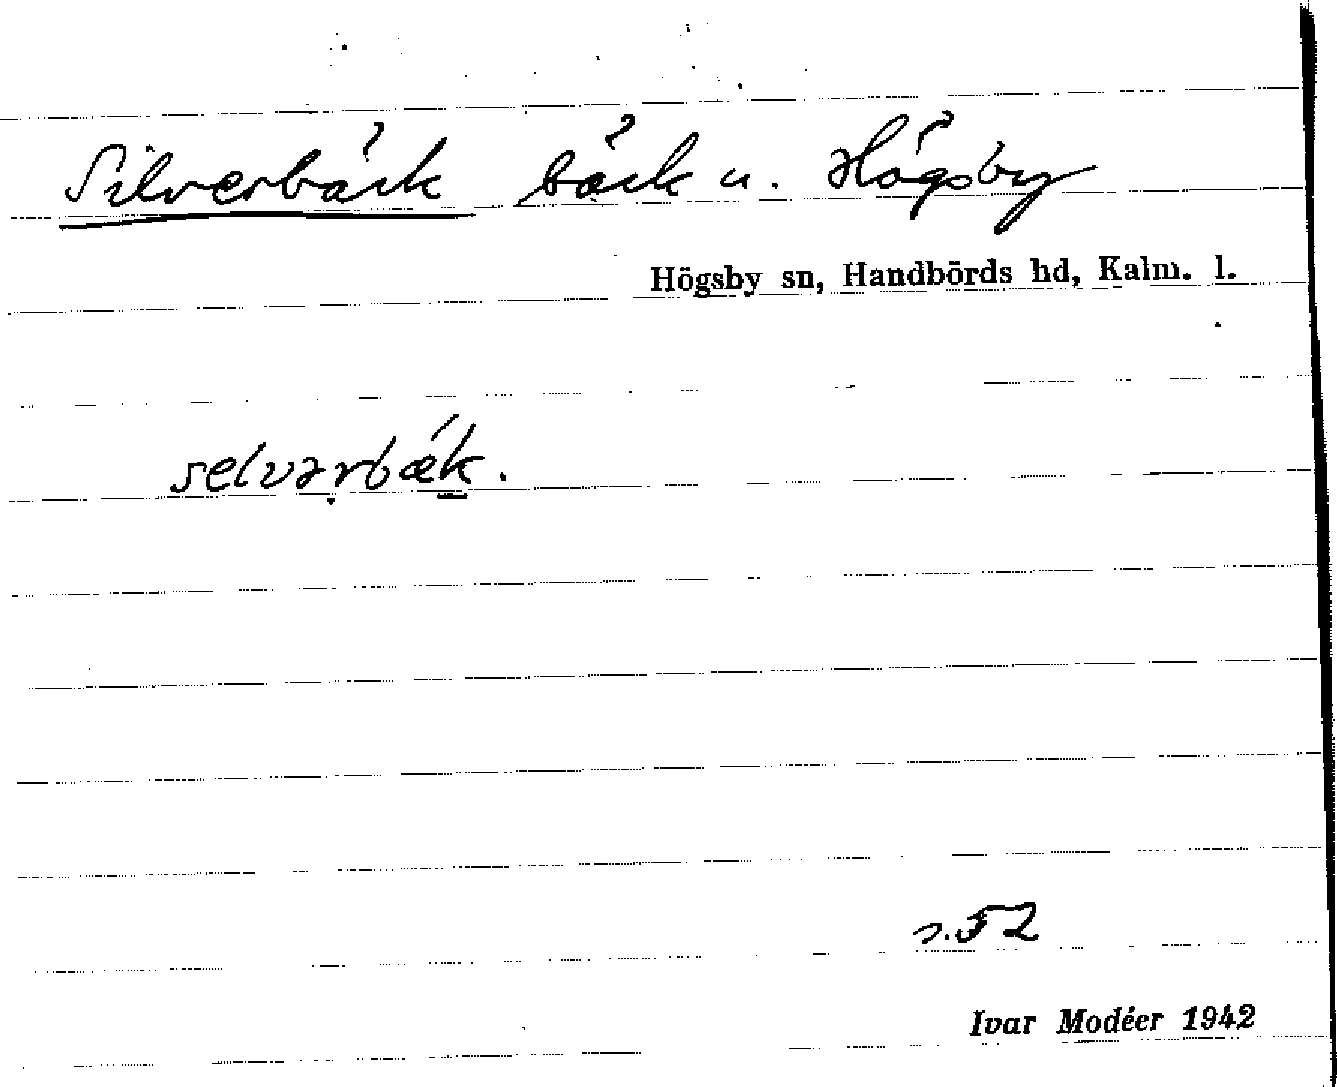 Silverbäck bäck u. Högsby
Högsby sn, Handbörds hd, Kalm. l.
selvərbǽk.
s. 52
Ivar Modéer 1942